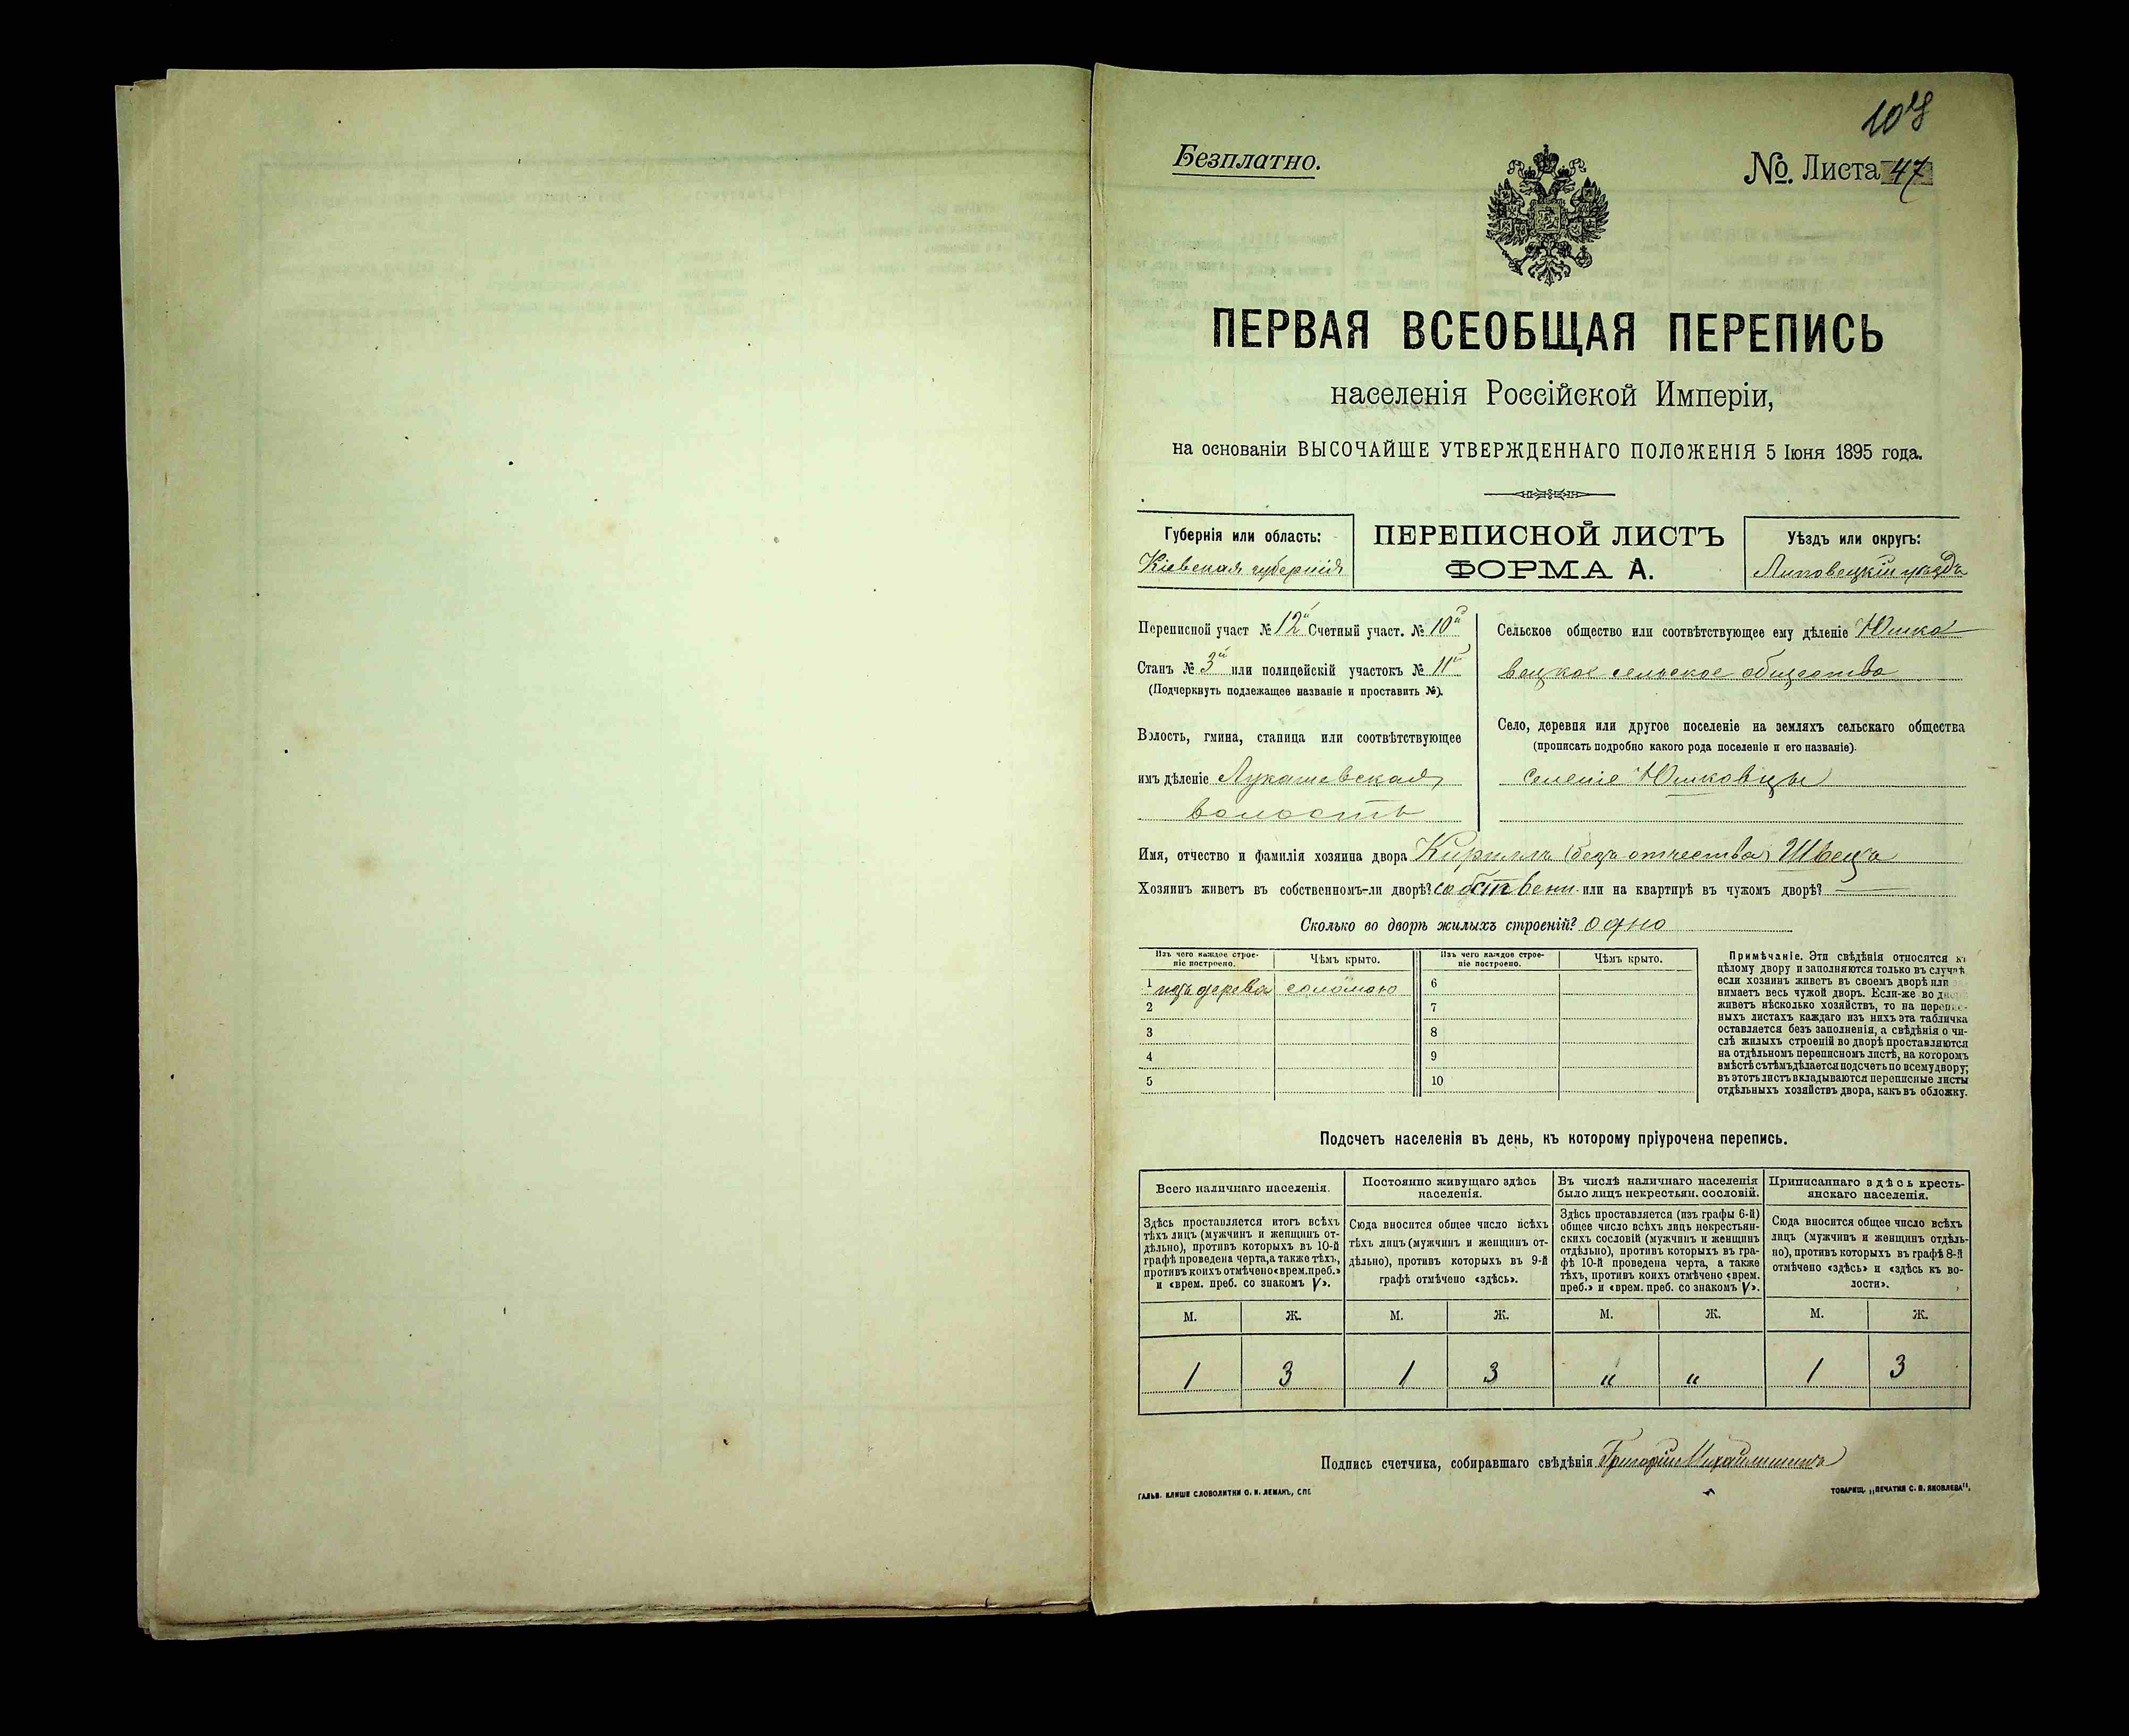 Безплатно.
№. Листа 47
ПЕРВАЯ ВСЕОБЩАЯ ПЕРЕПИСЬ
населенія Россійской Имперіи,
на основаніи ВЫСОЧАЙШЕ УТВЕРЖДЕННАГО ПОЛОЖЕНІЯ 5 Іюня 1895 года.
Губернія или область:
Кіевская губернія
ПЕРЕПИСНОЙ ЛИСТЪ
ФОРМА А.
Уѣздъ или округъ:
Липовецкій уѣздъ
Переписной участ № 12й Счетный участ. № 10й
Станъ № 3й или полицейскій участокъ № 11й
(Подчеркнуть подлежащее названіе и проставить №).
Волость, гмина, станица или соотвѣтствующее
имъ дѣленіе Лукашевская
волость
Сельское общество или соотвѣтствующее ему дѣленіе Юшко
вецкое сельское общество
Село, деревня или другое поселеніе на земляхъ сельскаго общества
(прописать подробно какого рода поселеніе и его названіе).
селеніе Юшковцы
Имя, отчество и фамилія хозяина двора Кириллъ (безъ отчества) Швецъ
Хозяинъ живетъ въ собственномъ-ли дворѣ? собствени. или на квартирѣ въ чужомъ дворѣ? —
Сколько во дворѣ жилыхъ строеній? одно
Изъ чего каждое строе-
ніе построено.
Чѣмъ крыто.
Изъ чего каждое строе-
ніе построено.
Чѣмъ крыто.
1 изъ дерева соломою 6
2 7
3 8
4 9
5 10
Примѣчаніе. Эти свѣдѣнія относятся къ
цѣлому двору и заполняются только въ случаѣ
если хозяинъ живетъ въ своемъ дворѣ или
нимаетъ весь чужой дворъ. Если-же во дворѣ
живетъ нѣсколько хозяйствъ, то на перепис-
ныхъ листахъ каждаго изъ нихъ эта табличка
оставляется безъ заполненія, а свѣдѣнія о чи-
слѣ жилыхъ строеній во дворѣ проставляются
на отдѣльномъ переписномъ листѣ, на которомъ
вмѣстѣ сътѣмъ дѣлается подсчетъ по всему двору;
въ этотъ листъ вкладываются переписные листы
отдѣльныхъ хозяйствъ двора, какъ въ обложку.
Подсчетъ населенія въ день, къ которому пріурочена перепись.
Всего наличнаго населенія.
Здѣсь проставляется итогъ всѣхъ
тѣхъ лицъ (мужчинъ и женщинъ от-
дѣльно), противъ которыхъ въ 10-й
графѣ проведена черта, а также тѣхъ,
противъ коихъ отмѣчено «врем. преб.»
и «врем. преб. со знакомъ V».
Постоянно живущаго здѣсь
населенія.
Сюда вносится общее число всѣхъ
тѣхъ лицъ (мужчинъ и женщинъ от-
дѣльно), противъ которыхъ въ 9-й
графѣ отмѣчено «здѣсь».
Въ числѣ наличнаго населенія
было лицъ некрестьян. сословій.
Здѣсь проставляется (изъ графы 6-й)
общее число всѣхъ лицъ некрестьян-
скихъ сословій (мужчинъ и женщинъ
отдѣльно), противъ которыхъ въ гра-
фѣ 10-й проведена черта, а также
тѣхъ, противъ коихъ отмѣчено «врем.
преб.» и «врем. преб. со знакомъ V».
Приписаннаго здѣсь кресть-
янскаго населенія.
Сюда вносится общее число всѣхъ
лицъ (мужчинъ и женщинъ отдѣль-
но), противъ которыхъ въ графѣ 8-й
отмѣчено «здѣсь» и «здѣсь къ во-
лости».
М. Ж. М. Ж. М. Ж. М. Ж.
1 3 1 3 " " 1 3
Подпись счетчика, собиравшаго свѣдѣнія Григорій
ГАЛЬВ. КЛИШЕ СЛОВОЛИТНИ О. И. ЛЕМАНЪ, СПБ
ТОВАРИЩ. „ПЕЧАТНЯ С. П. ЯКОВЛЕВА".